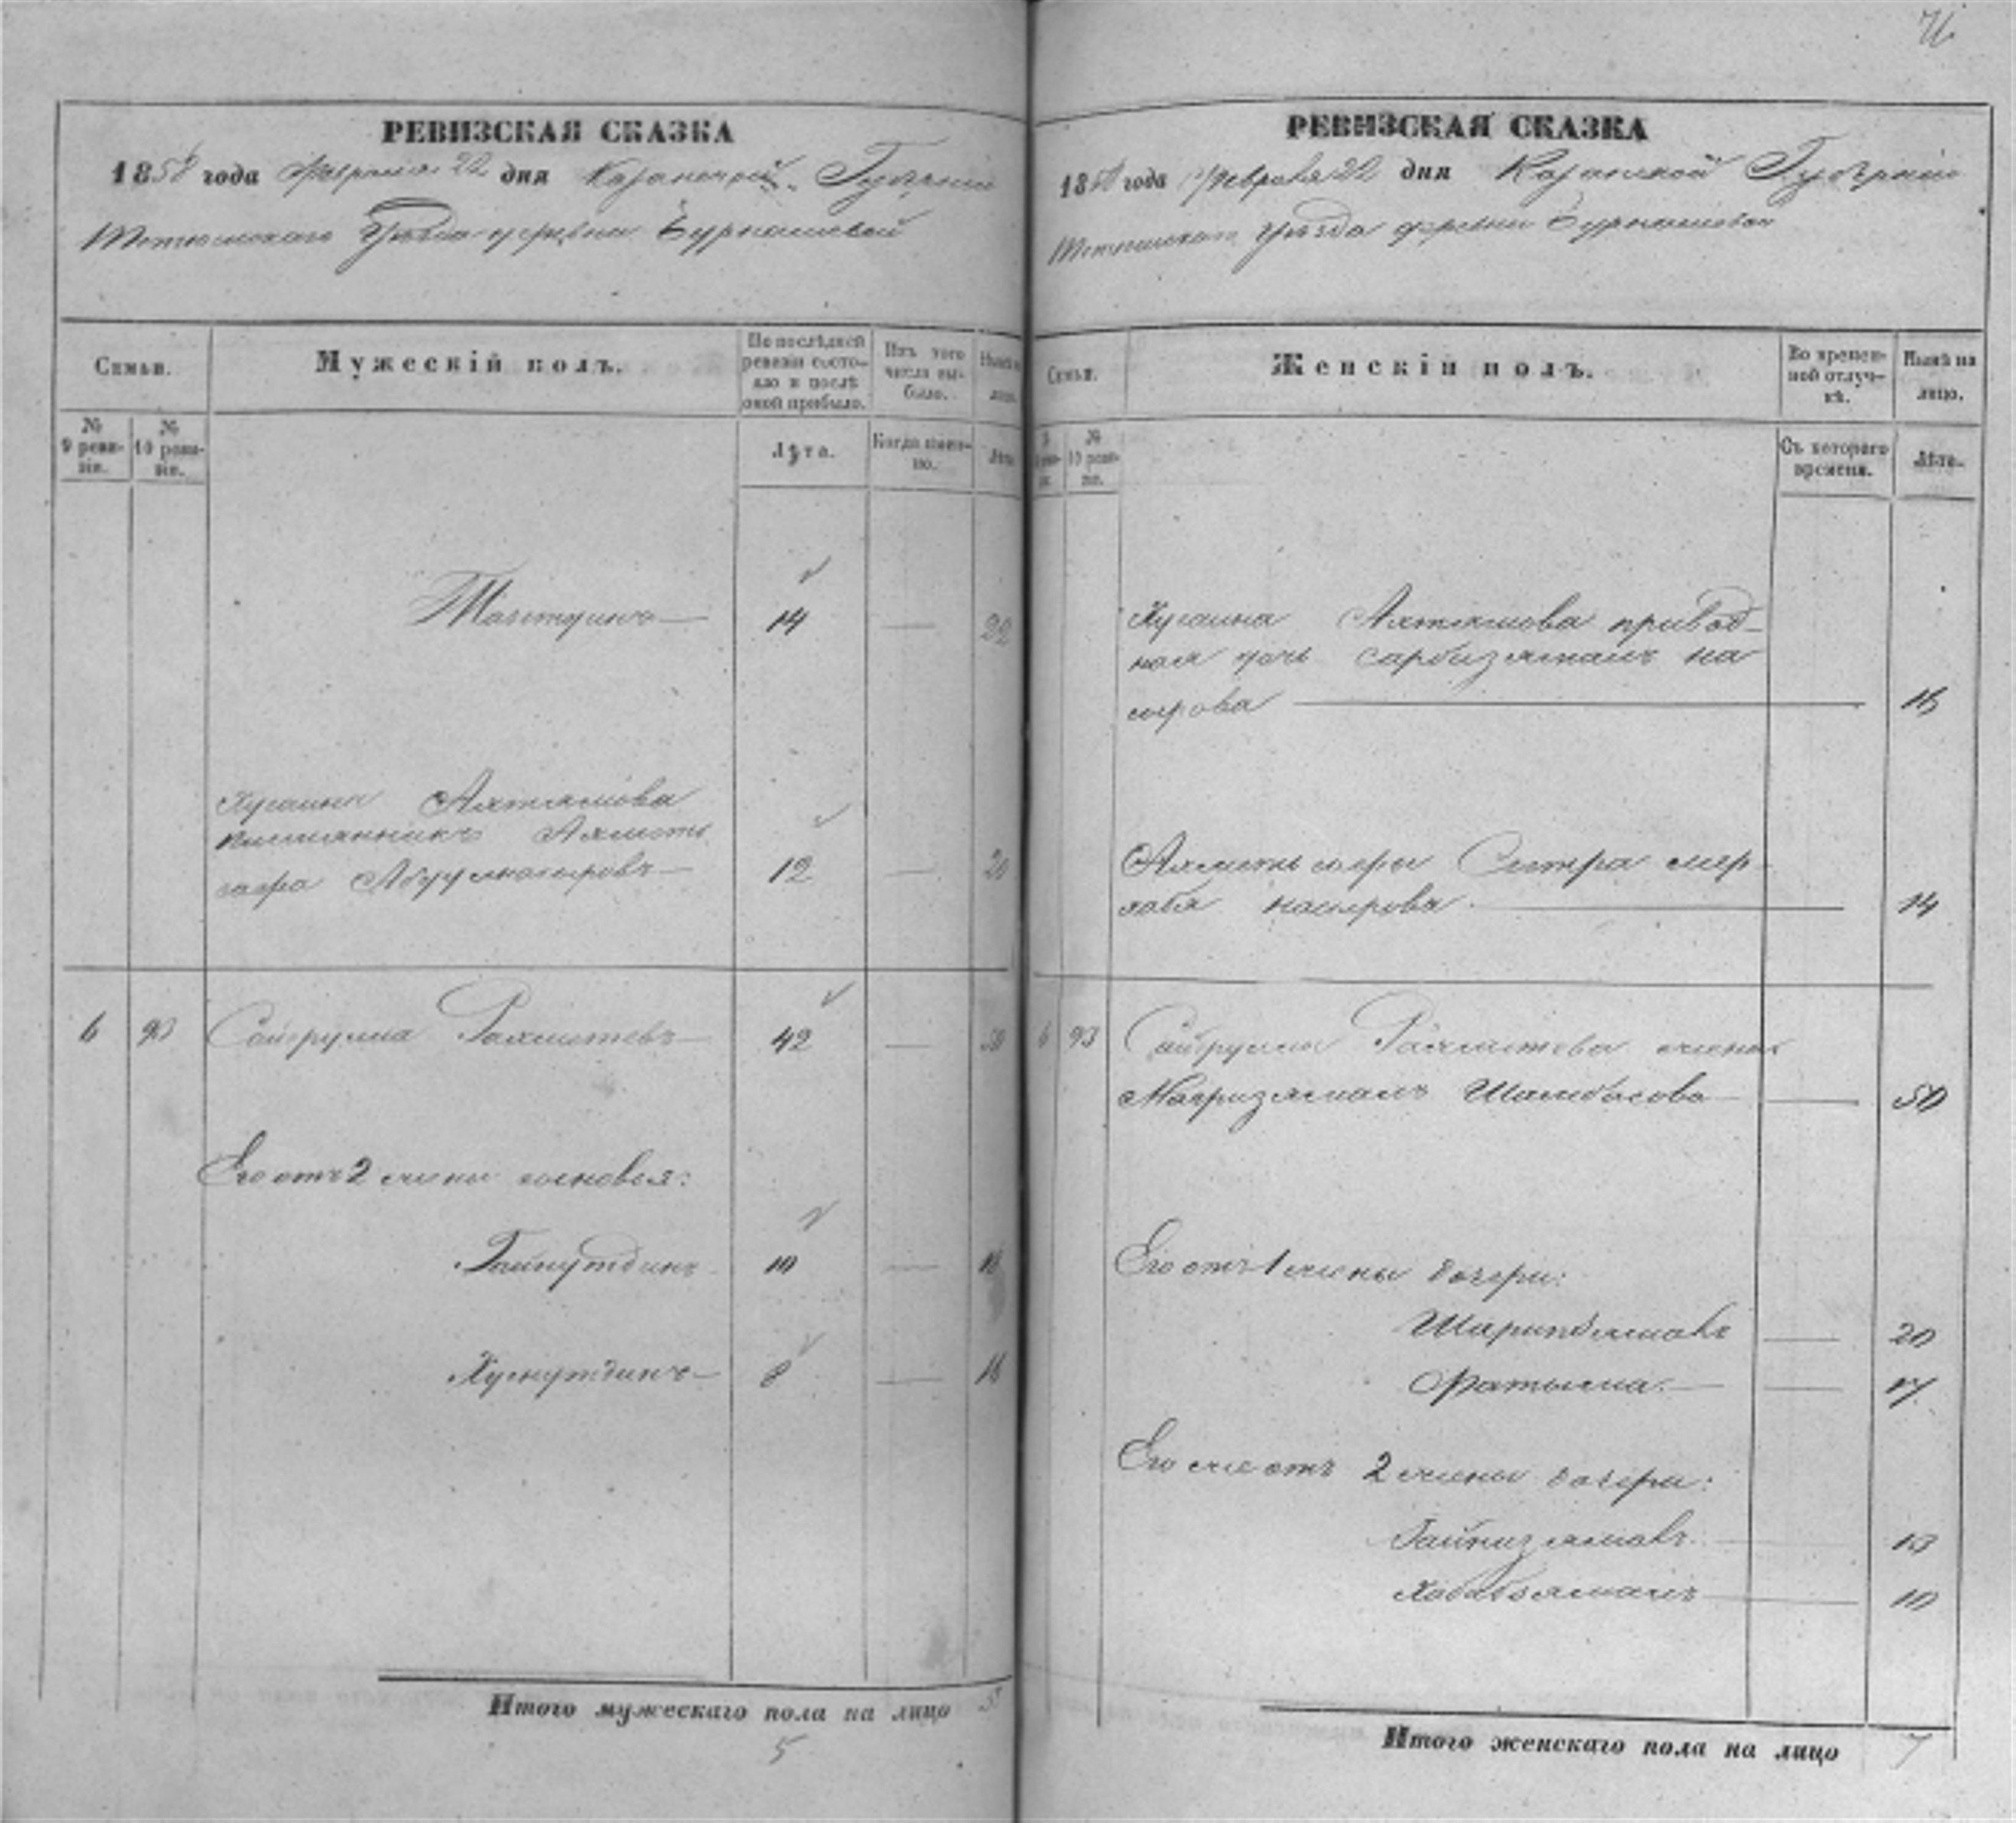 71
РЕВИЗСКАЯ СКАЗКА
1858 года Февраля 22 дня Казанской Губерніи
Тетюшскаго Уѣзда деревни Бурнашевой
Семьи.
Мужескій полъ.
По послѣдней ревизіи состояло и послѣ оной прибыло.
Изъ того числа выбыло.
Нынѣ на лицо.
№ 9 ревизіи.
№ 10 ревизіи.
Лѣта.
Когда именно.
Лѣта
14 — 22
Хусаина Ахтямова
племянникъ Ахметь
сафа Абдулнасыровъ — 12 — 20
6 93 Сайфулла Рахметевъ — 42 — 50
Его отъ 2 жены сыновья:
Гайнутдинъ 10 — 18
Хуснутдинъ — 8 — 16
Итого мужескаго пола на лицо 5
5
РЕВИЗСКАЯ СКАЗКА
1858 года Февраля 22 дня Казанской Губерніи
Тетюшскаго Уѣзда деревни Бурнашевой
Семьи.
Женскій полъ.
Во временной отлучкѣ.
Нынѣ на лицо.
№ 10 ревизіи.
Съ котораго времени.
Лѣта.
Хусаина Ахтямова привод-
ная дочь Сарбизямалъ На
сырова — 16
Насырова — 14
6 93 Сайфуллы Рахметева жена
Магризямалъ — 50
Его отъ 1 жены дочери:
20
Фатыма — — 17
Его же отъ 2 жены дочери:
Гайнизямалъ 13
10
Итого женскаго пола на лицо 7